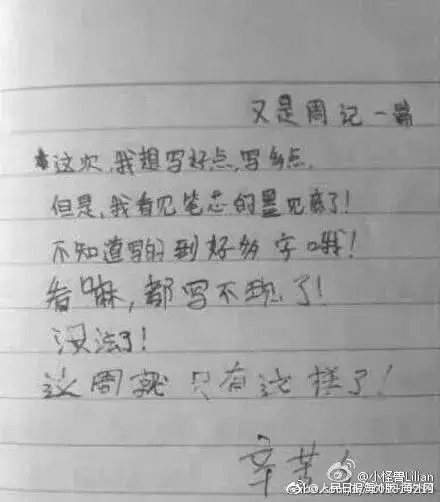 又是周记一篇
这次,我想写好点,写多点,
但是,我看见笔芯的墨见底了!
不知道写的到好多字哦!
看嘛,都写不现了!
没法了!
这周就只有这样了!
辛苦
@小怪兽Lilian